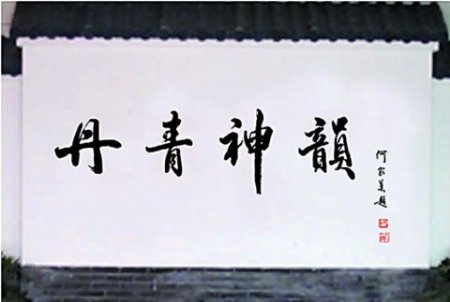 丹青神韻
何家英題